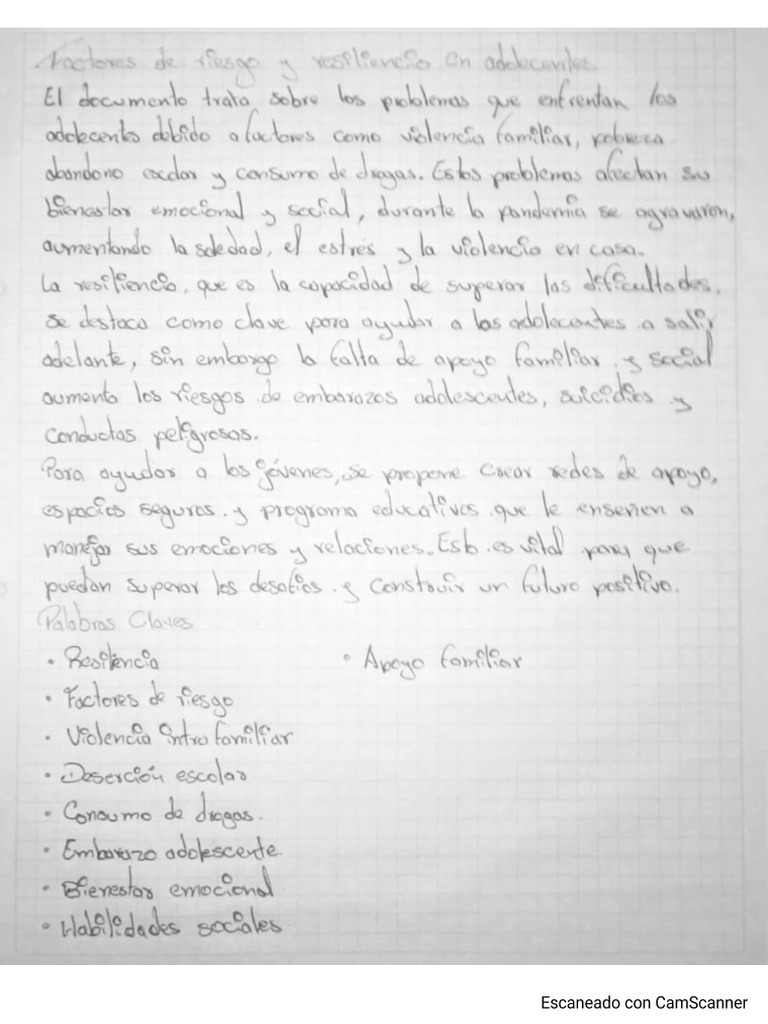 Factores de riesgo y resiliencia en adolecentes
El documento trata sobre los problemas que enfrentan los
adolecentes debido a factores como violencia familiar, pobreza
abandono escolar y consumo de drogas. Estos problemas afectan su
bienestar emocional y social, durante la pandemia se agravaron,
aumentando la soledad, el estrés y la violencia en casa.
La resiliencia, que es la capacidad de superar las dificultades,
se destaca como clave para ayudar a los adolecentes a salir
adelante, sin embargo la falta de apoyo familiar y social
aumenta los riesgos de embarazos adolescentes, suicidios y
conductas peligrosas.
Para ayudar a los jóvenes, se propone crear redes de apoyo,
espacios seguros y programa educativos que le enseñen a
manejar sus emociones y relaciones. Esto es vital para que
puedan superar los desafíos y construir un futuro positivo.
Palabras Claves
• Resiliencia • Apoyo familiar
• Factores de riesgo
• Violencia intrafamiliar
• Deserción escolar
• Consumo de drogas.
• Embarazo adolescente
• Bienestar emocional
• Habilidades sociales
Escaneado con CamScanner